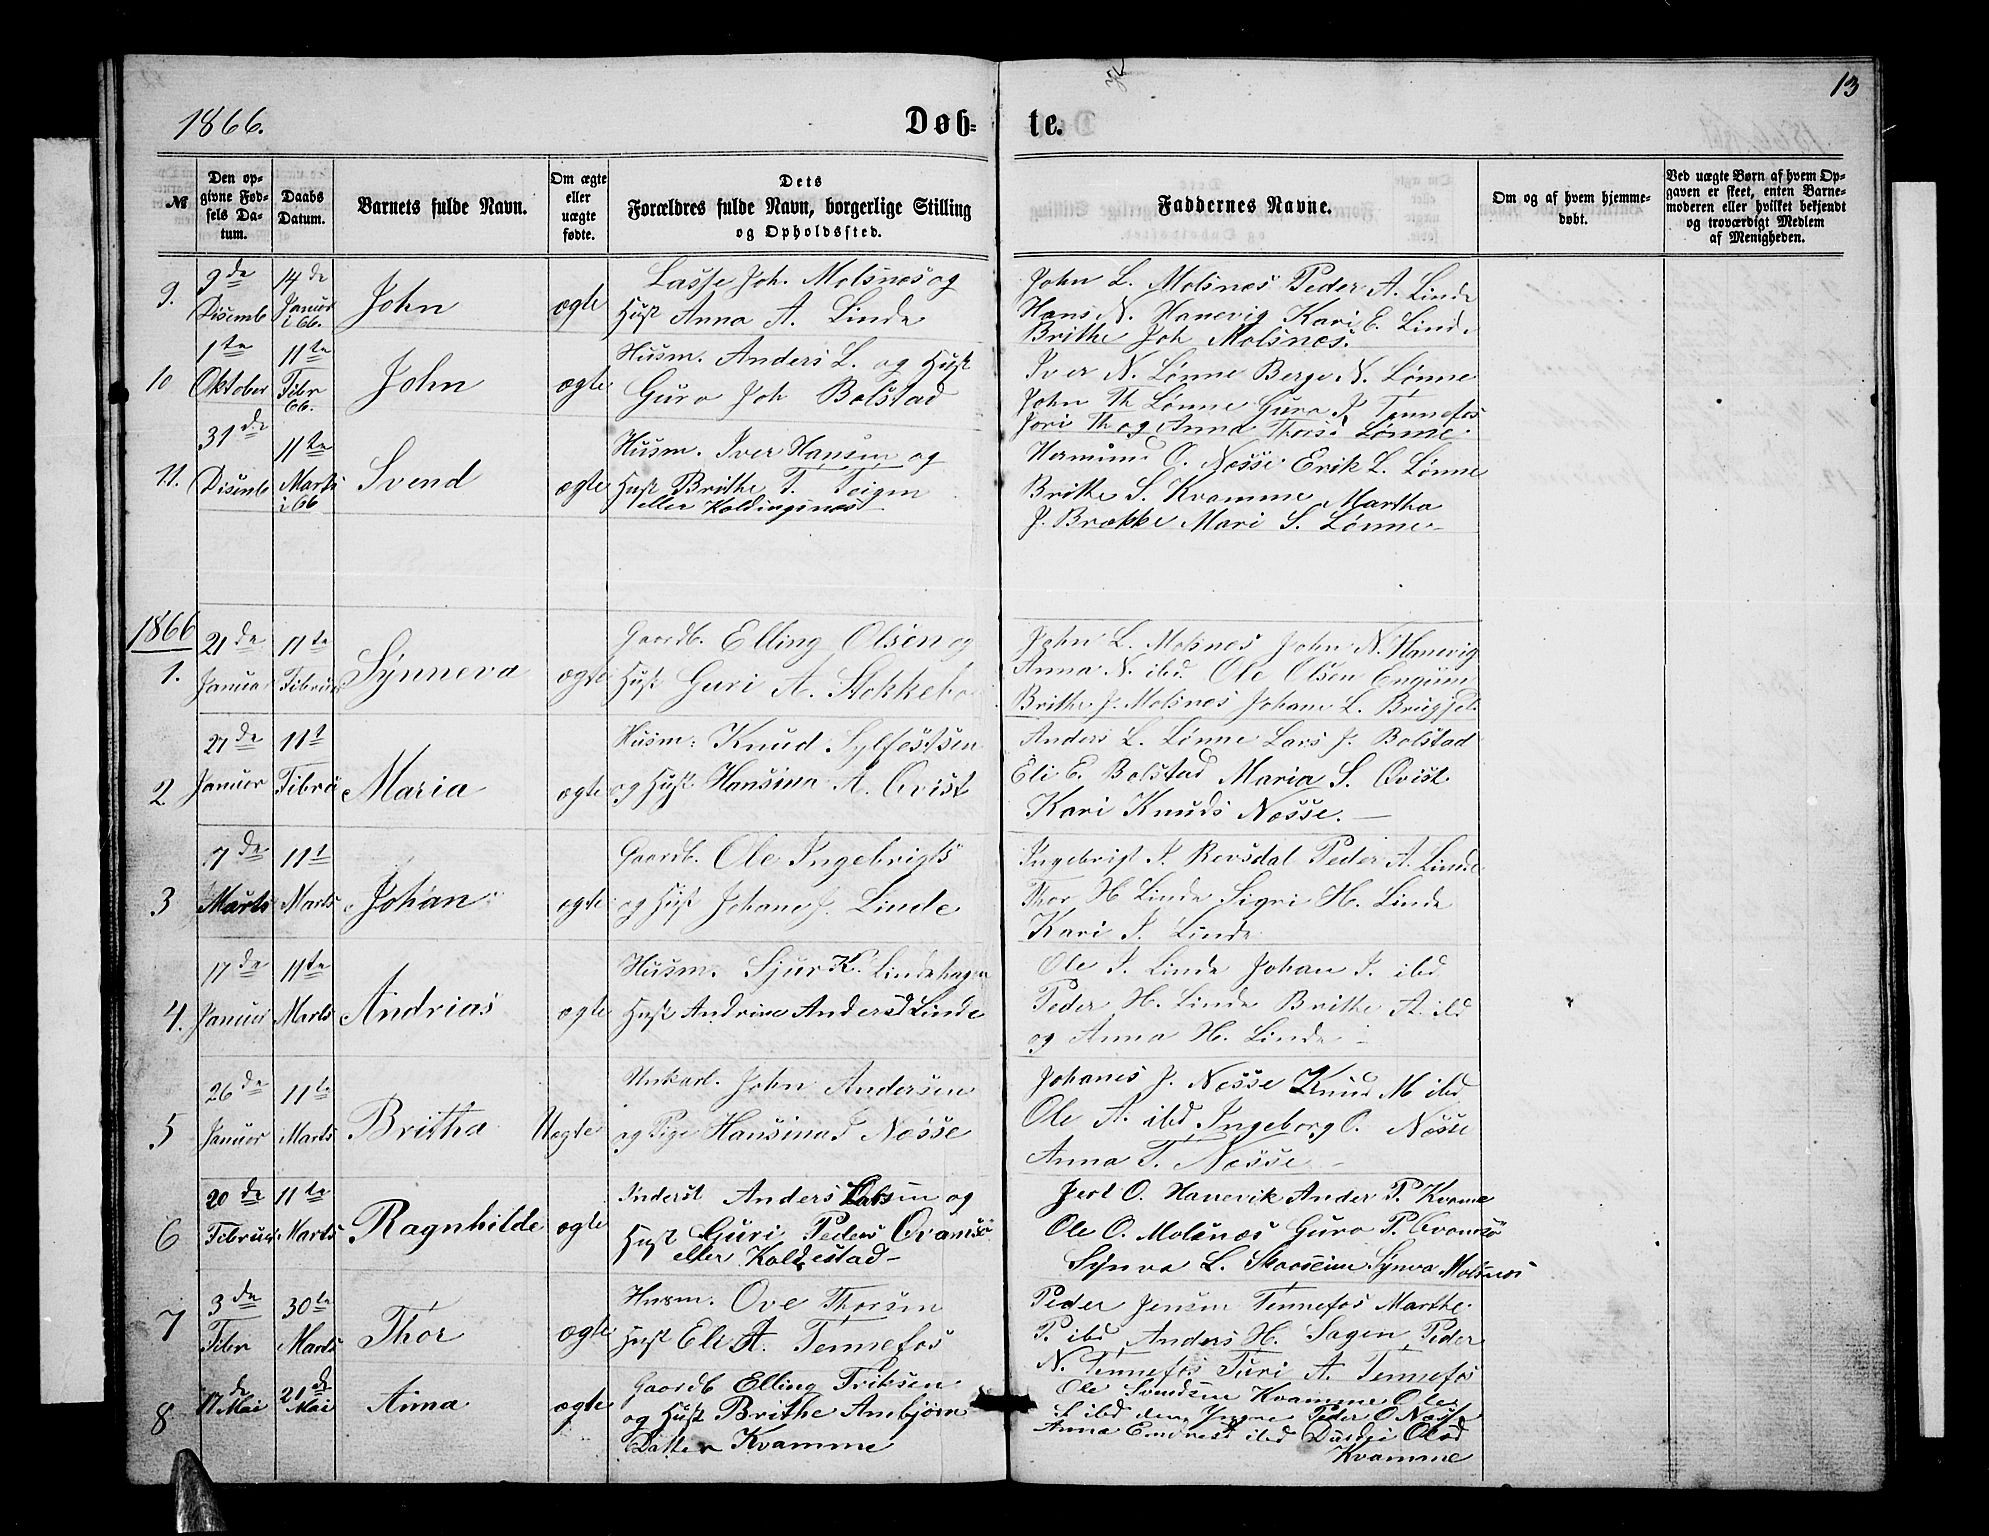 13
1866.
Døb-
te.
№
Den op-
givne Fød-
sels Da-
tum.
Daabs
Datum.
Barnets fulde Navn.
Om ægte
eller
uægte
fødte.
Dets
Forældres fulde Navn, borgerlige Stilling
og Opholdssted.
Faddernes Navne.
Om og af hvem hjemme-
døbt.
Ved uægte Børn af hvem Op-
gaven er skeet, enten Barne-
moderen eller hvilket bekjendt
og troværdigt Medlem
af Menigheden.
9.
9de
Disemb
14de
Januar
i 66.
John
ægte
Lasse Joh. Molsnæs og
Hust Anna A. Linde
John L. Molsnæs Peder A. Linde
Hans N. Hanevig Kari E. Linde
Brithe Joh Molsnæs.
10
1te
Oktober
11te
Febr
66.
John
ægte
Husm. Anders L. og Hust
Guro Joh Bolstad
Iver N. Lønne Berge N. Lønne
John Th Lønne Guro P. Tennefos
Jori Th og Anna Thors. Lønne.
11.
31de
Disemb
11te
Marts
i 66
Svend
ægte
Husm. Iver Hansen og
Hust Brithe T. Teigen
eller Koldingsnæs
O. Næsse Erik L. Lønne
Brithe S. Kvamme Martha
J. Brække Mari S. Lønne
1866
1.
21de
Januar
11te
Februar
Synneva
ægte
Gaardb. Elling Olsen og
Hust Guri A. Stokkebø
John L. Molsnæs John N. Hanevig
Anna N. ibd Ole Olsen Engum
Brithe J. Molsnæs Johane L.
2
27de
Januar
11t
Febru
Maria
ægte
Husm: Knud Sylfestsen
og Hust Hansina A. Qvist
Anders L. Lønne Lars J. Bolstad
Eli E. Bolstad Maria S. Qvist
Kari Knuds Næsse.
3
7de
Marts
11t
Marts
Johan
ægte
Gaardb. Ole Ingebrigts
og Hust Johane J. Linde
Ingebrigt I. Peder A. Linde
Thor H Linde Sigri H. Linde
Kari I. Linde
4.
17de
Januar
11te
Marts
Andrias
ægte
Husm. Sjur K. Lindehagen
Hust Andrine Andersd Linde
Ole I. Linde Johan I. ibd
Peder H. Linde Brithe A. ibd
og Anna H. Linde
5
26de
Januar
11te
Marts
Britha
Uægte
Unkarl. John Andersen
og Pige Hansina I Næsse
Johanes J. Næsse Knud M ibd
Ole A. ibd Ingeborg O. Næsse
Anna T. Næsse
6
20de
Februar
11te
Marts
Ragnhilde
ægte
Inderst Anders Larsen og
Hust Guri Peders Qvamsø
eller Koldestad
O. Hanevik Ander P. Kvame
Ole O. Molsnæs Guro P. Qvamsø
Synva L. Synva Molsnæs
7
3de
Febr
30te
Marts
Thor
ægte
Husm. Ove Thorsen
Hust Eli A. Tennefos
Peder Jensen Tennefos Marthe
P. ibd Anders H. Sagen Peder
N. Tennefos Turi A. Tennefos
8
17de
Mai
21de
Mai
Anna
ægte
Gaardb Elling Eriksen
og Hust Brithe Ambjørn
Datter Kvamme
Ole Svendsen Kvamme Ole
S ibd den Yngre Peder O Næsse
Anna ibd Olsd
Kvamme